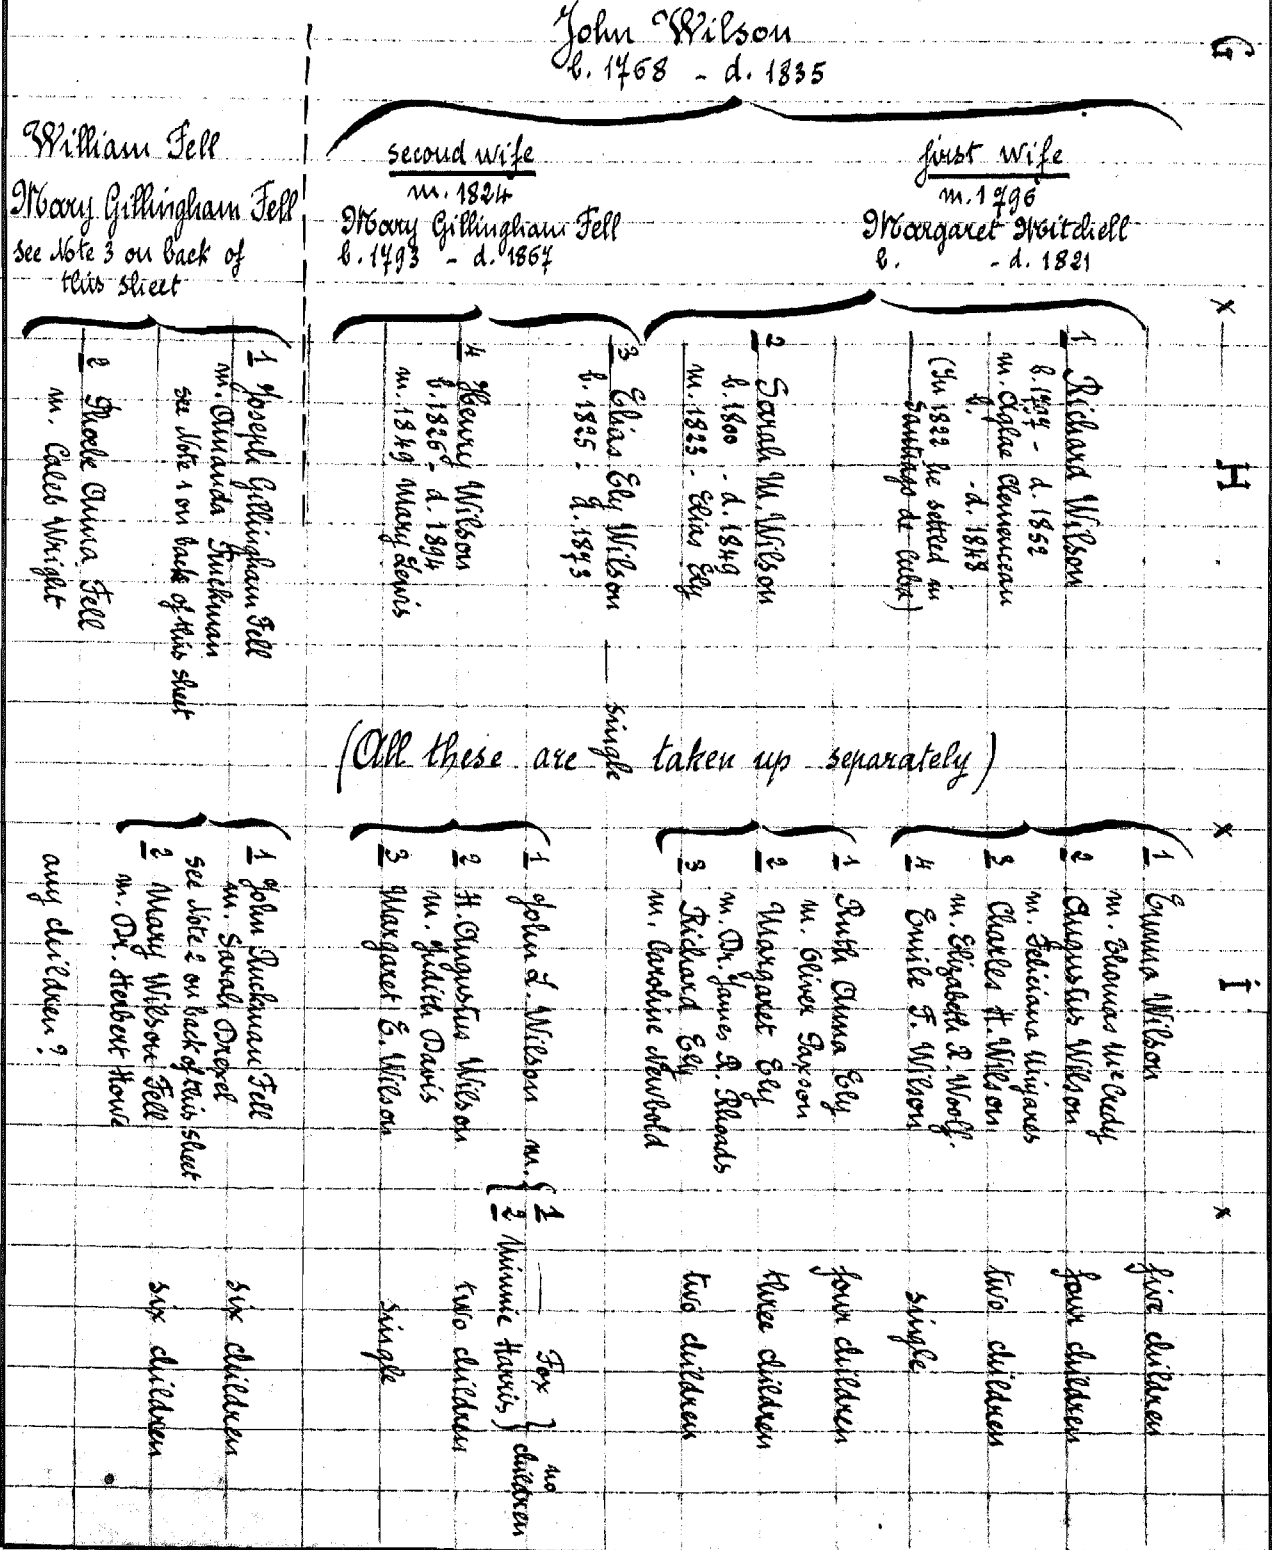 G
John Wilson
b. 1768 - d. 1835
first wife
m. 1796
Margaret Mitchell
b. - d. 1821
second wife
m. 1824
Mary Gillingham Fell
b. 1793 - d. 1867
William Fell
Mary Gillingham Fell
see Note 3 on back of
this sheet
x
H
1 Richard Wilson
b. 1797 - d. 1852
m. Aglae Clemenceau
b. - d. 1848
(In 1822 he settled in
Santiago de Cuba)
2 Sarah M. Wilson
b. 1800 - d. 1849
m. 1823 - Elias Ely
3 Elias Ely Wilson — single
b. 1825 - d. 1893
4 Henry Wilson
b. 1826 - d. 1894
m. 1849 Mary Lewis
1 Joseph Gillingham Fell
m. Amanda Ruckman
see Note 1 on back of this sheet
2 Phoebe Anna Fell
m. Caleb Wright
(All these are taken up separately)
x
i
1 Emma Wilson
m. Thomas McCredy
five children
2 Augustus Wilson
m. Feliciana Mijares
four children
3 Charles H. Wilson
m. Elizabeth R. Woolf.
two children
4 Emile F. Wilson
single
1 Ruth Anna Ely
m. Oliver Paxson
four children
2 Margaret Ely
m. Dr. James R. Rhoads
three children
3 Richard Ely
m. Caroline Newbold
two children
1 John L. Wilson m.
1 — Fox
2 Minnie Harris
no
children
2 H. Augustus Wilson
m. Judith Davis
two children
3 Margaret E. Wilson
single
1 John Ruckman Fell
m. Sarah Drexel
see Note 2 on back of this sheet
six children
2 Mary Wilson Fell
m. Dr. Herbert Howe
six children
any children?
x